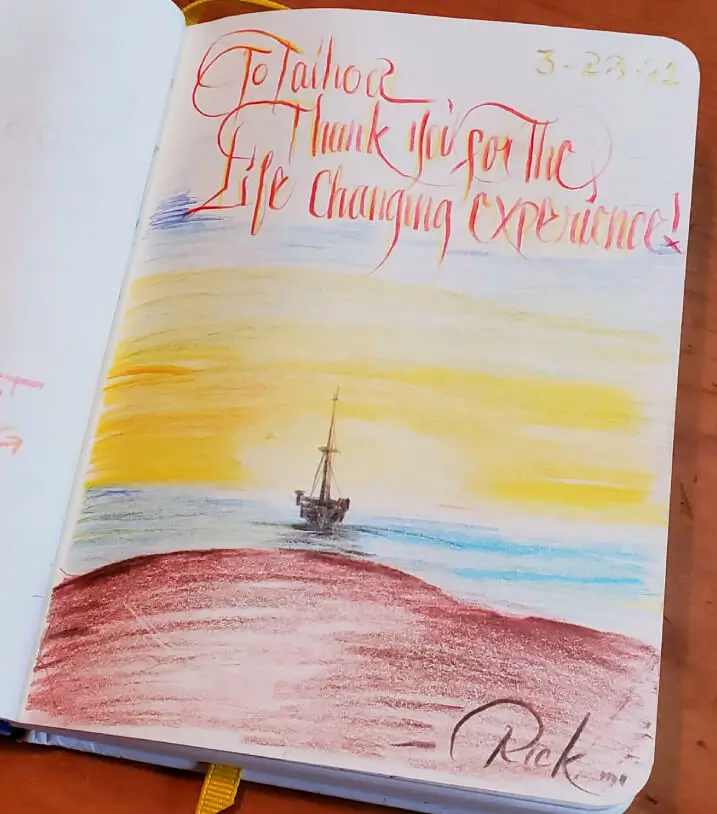 3-23-21
To Taihoa
Thank you for The
Life changing experience!
- Rick